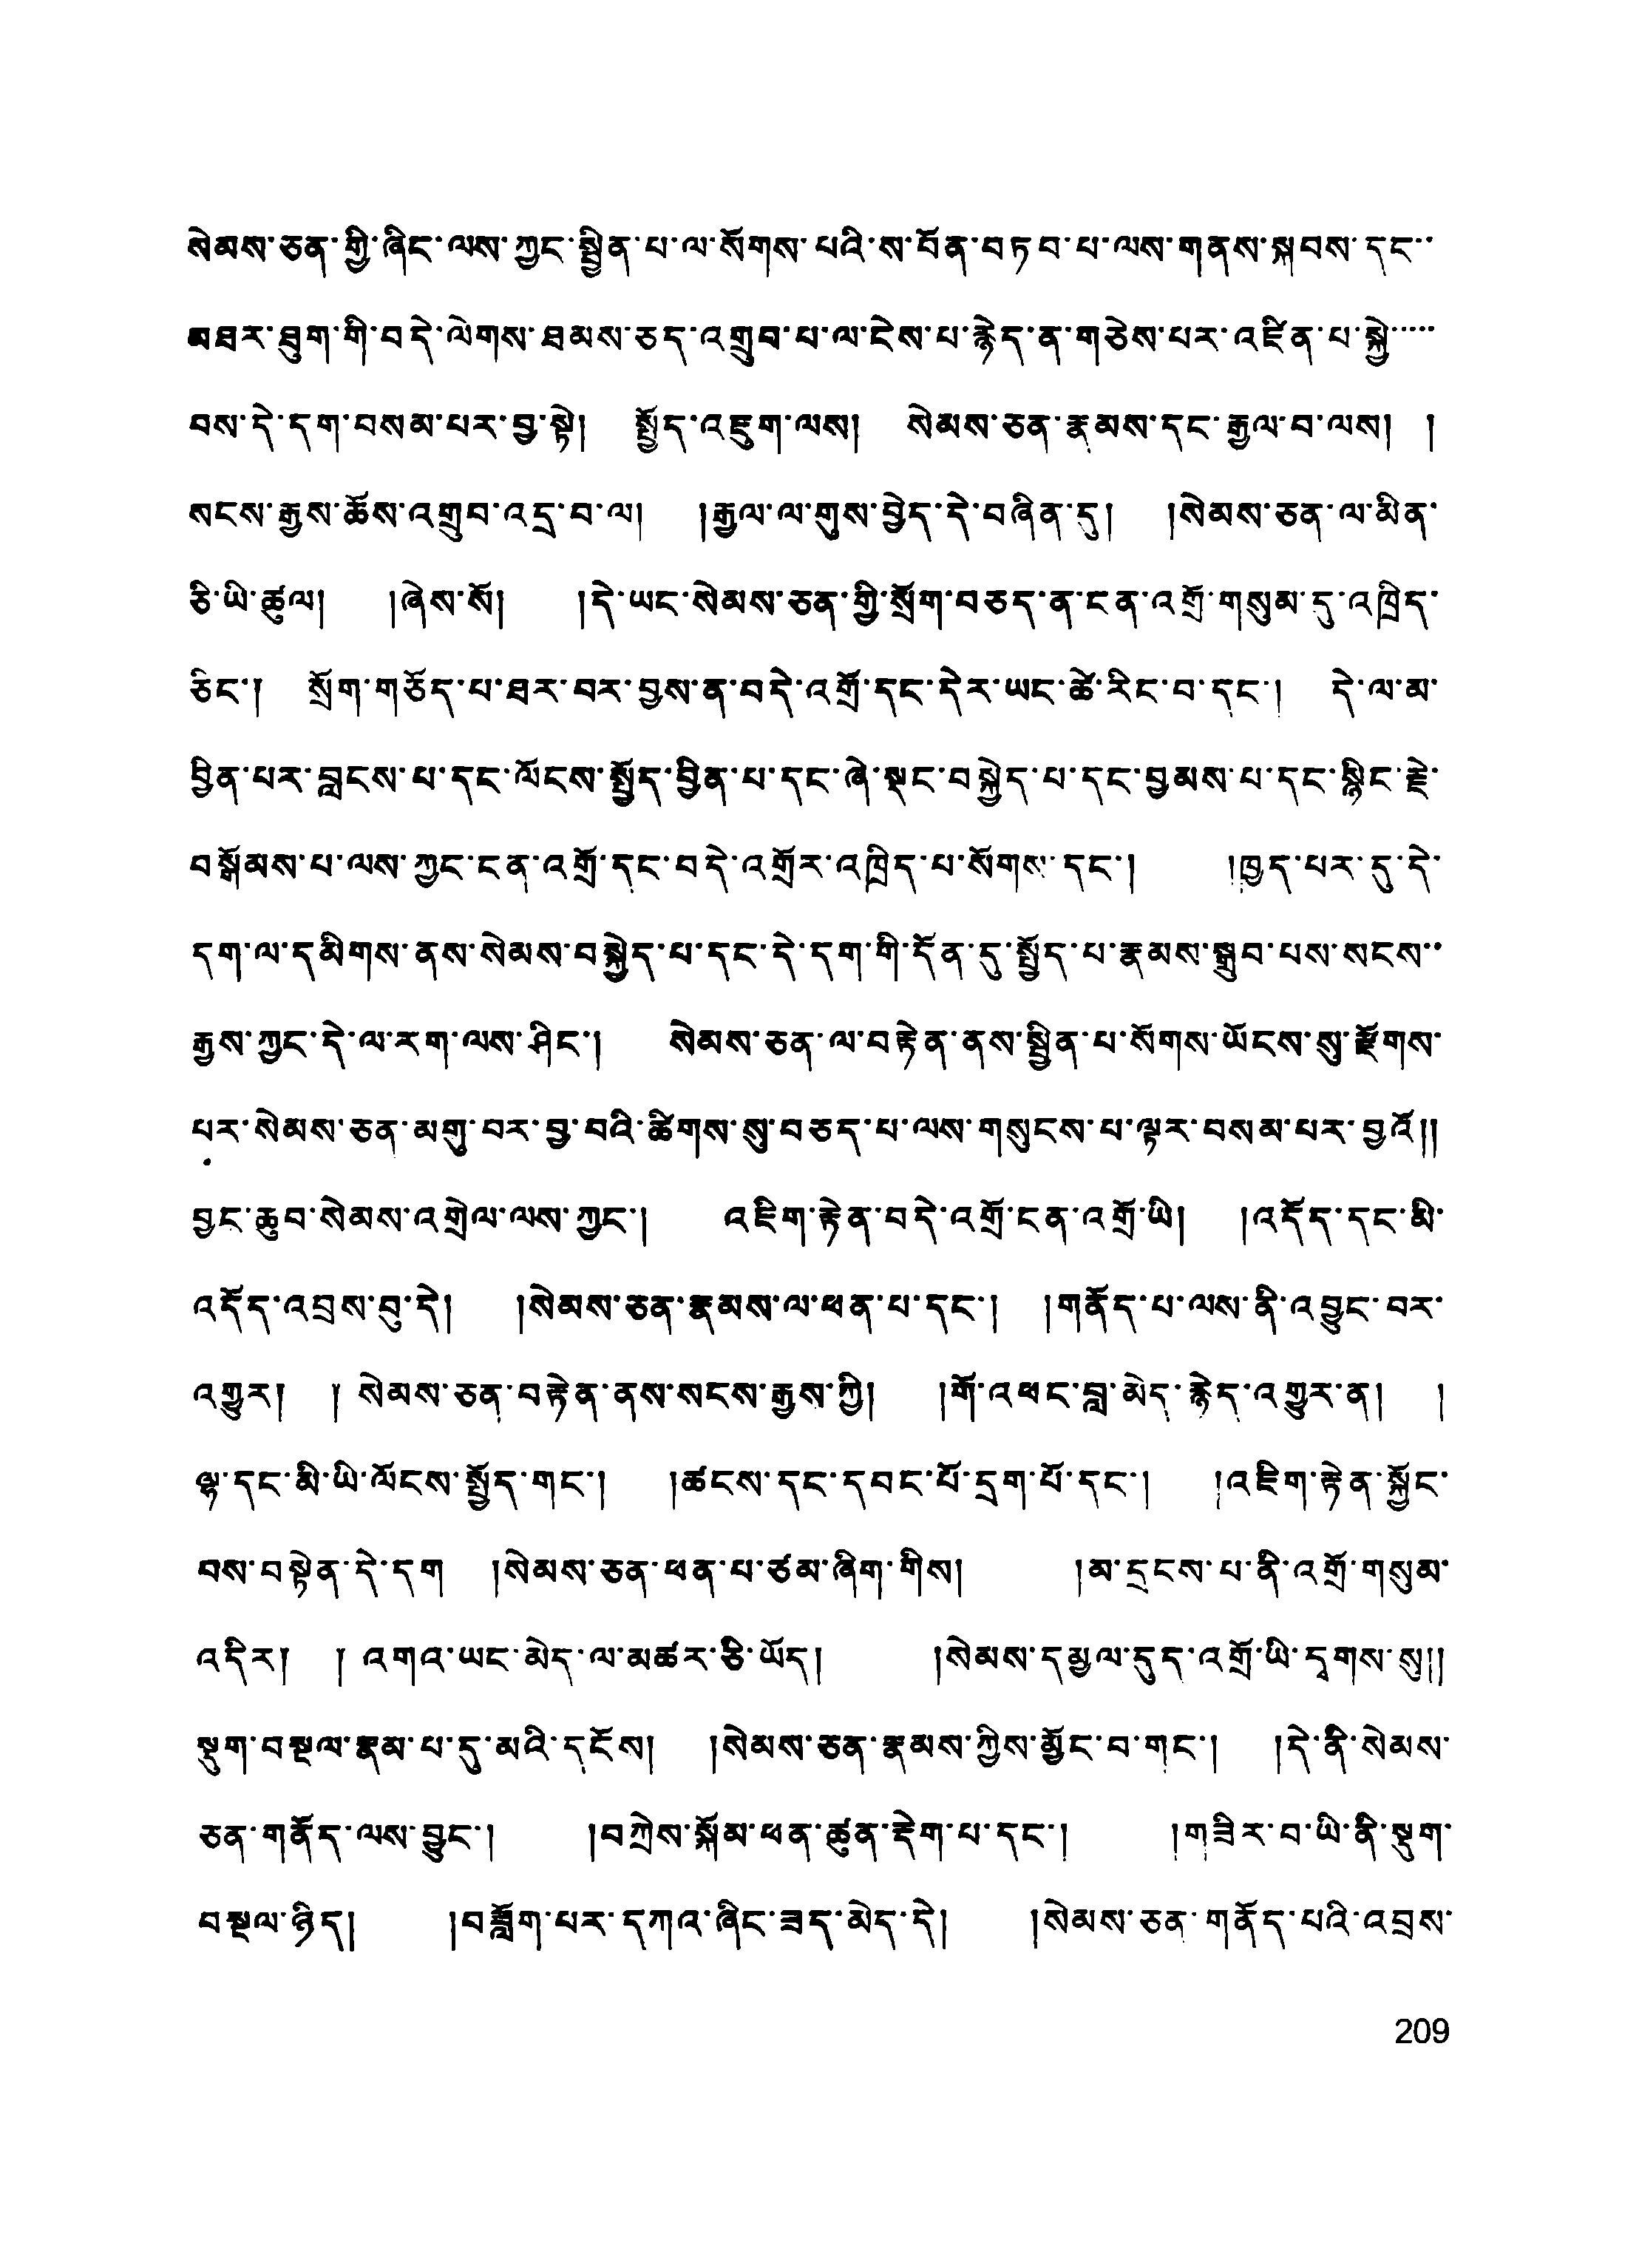 སེམས་ཅན་གྱི་ཞིང་ལས་ཀྱང་སྦྱིན་པ་ལ་སོགས་པའི་ས་བོན་བཏབ་པ་ལས་གནས་སྐབས་དང་་
མཐར་ཐུག་གི་བདེ་ལེགས་ཐམས་ཅད་འགྲུབ་པ་ལ་ངེས་པ་རྙེད་ན་གཅེས་པར་འཛིན་པ་སྐྱེ་་་་་
བས་དེ་དག་བསམ་པར་བྱ་སྟེ། སྤྱོད་འཇུག་ལས། སེམས་ཅན་རྣམས་དང་རྒྱལ་བ་ལས། །
སངས་རྒྱས་ཆོས་འགྲུབ་འདྲ་བ་ལ། །རྒྱལ་ལ་གུས་བྱེད་དེ་བཞིན་དུ། །སེམས་ཅན་ལ་མིན་
ཅི་ཡི་ཚུལ། །ཞེས་སོ། །དེ་ཡང་སེམས་ཅན་གྱི་སྲོག་བཅད་ན་ངན་འགྲོ་གསུམ་དུ་འཁྲིད་
ཅིང་། སྲོག་གཅོད་པ་ཐར་བར་བྱས་ན་བདེ་འགྲོ་དང་དེར་ཡང་ཚེ་རིང་བ་དང་། དེ་ལ་མ་
བྱིན་པར་བླངས་པ་དང་ལོངས་སྤྱོད་བྱིན་པ་དང་ཞེ་སྡང་བསྐྱེད་པ་དང་བྱམས་པ་དང་སྙིང་རྗེ་
བསྒོམས་པ་ལས་ཀྱང་ངན་འགྲོ་དང་བདེ་འགྲོར་འཁྲིད་པ་སོགས་དང་། །ཁྱད་པར་དུ་དེ་
དག་ལ་དམིགས་ནས་སེམས་བསྐྱེད་པ་དང་དེ་དག་གི་དོན་དུ་སྤྱོད་པ་རྣམས་སྒྲུབ་པས་སངས་་
རྒྱས་ཀྱང་དེ་ལ་རག་ལས་ཤིང་། སེམས་ཅན་ལ་བརྟེན་ནས་སྦྱིན་པ་སོགས་ཡོངས་སུ་རྫོགས་
པར་སེམས་ཅན་མགུ་བར་བྱ་བའི་ཚིགས་སུ་བཅད་པ་ལས་གསུངས་པ་ལྟར་བསམ་པར་བྱའོ།།
བྱང་ཆུབ་སེམས་འགྲེལ་ལས་ཀྱང་། འཇིག་རྟེན་བདེ་འགྲོ་ངན་འགྲོ་ཡི། །འདོད་དང་མི་
འདོད་འབྲས་བུ་དེ། །སེམས་ཅན་རྣམས་ལ་ཕན་པ་དང་། །གནོད་པ་ལས་ནི་འབྱུང་བར་
འགྱུར། ། སེམས་ཅན་བརྟེན་ནས་སངས་རྒྱས་ཀྱི། །གོ་འཕང་བླ་མེད་རྙེད་འགྱུར་ན། །
ལྷ་དང་མི་ཡི་ལོངས་སྤྱོད་གང་། །ཚངས་དང་དབང་པོ་དྲག་པོ་དང་། །འཇིག་རྟེན་སྐྱོང་
བས་བསྟེན་དེ་དག །སེམས་ཅན་ཕན་པ་ཙམ་ཞིག་གིས། །མ་དྲངས་པ་ནི་འགྲོ་གསུམ་
འདིར། ། འགའ་ཡང་མེད་ལ་མཚར་ཅི་ཡོད། །སེམས་དམྱལ་དུད་འགྲོ་ཡི་དྭགས་སུ།།
སྡུག་བསྔལ་རྣམ་པ་དུ་མའི་དངོས། །སེམས་ཅན་རྣམས་ཀྱིས་མྱོང་བ་གང་། །དེ་ནི་སེམས་
ཅན་གནོད་ལས་བྱུང་། །བཀྲེས་སྐོམ་ཕན་ཚུན་རྡེག་པ་དང་། །གཟིར་བ་ཡི་ནི་སྡུག་
བསྔལ་ཉིད། །བཟློག་པར་དཀའ་ཞིང་ཟད་མེད་དེ། །སེམས་ཅན་གནོད་པའི་འབྲས་
209